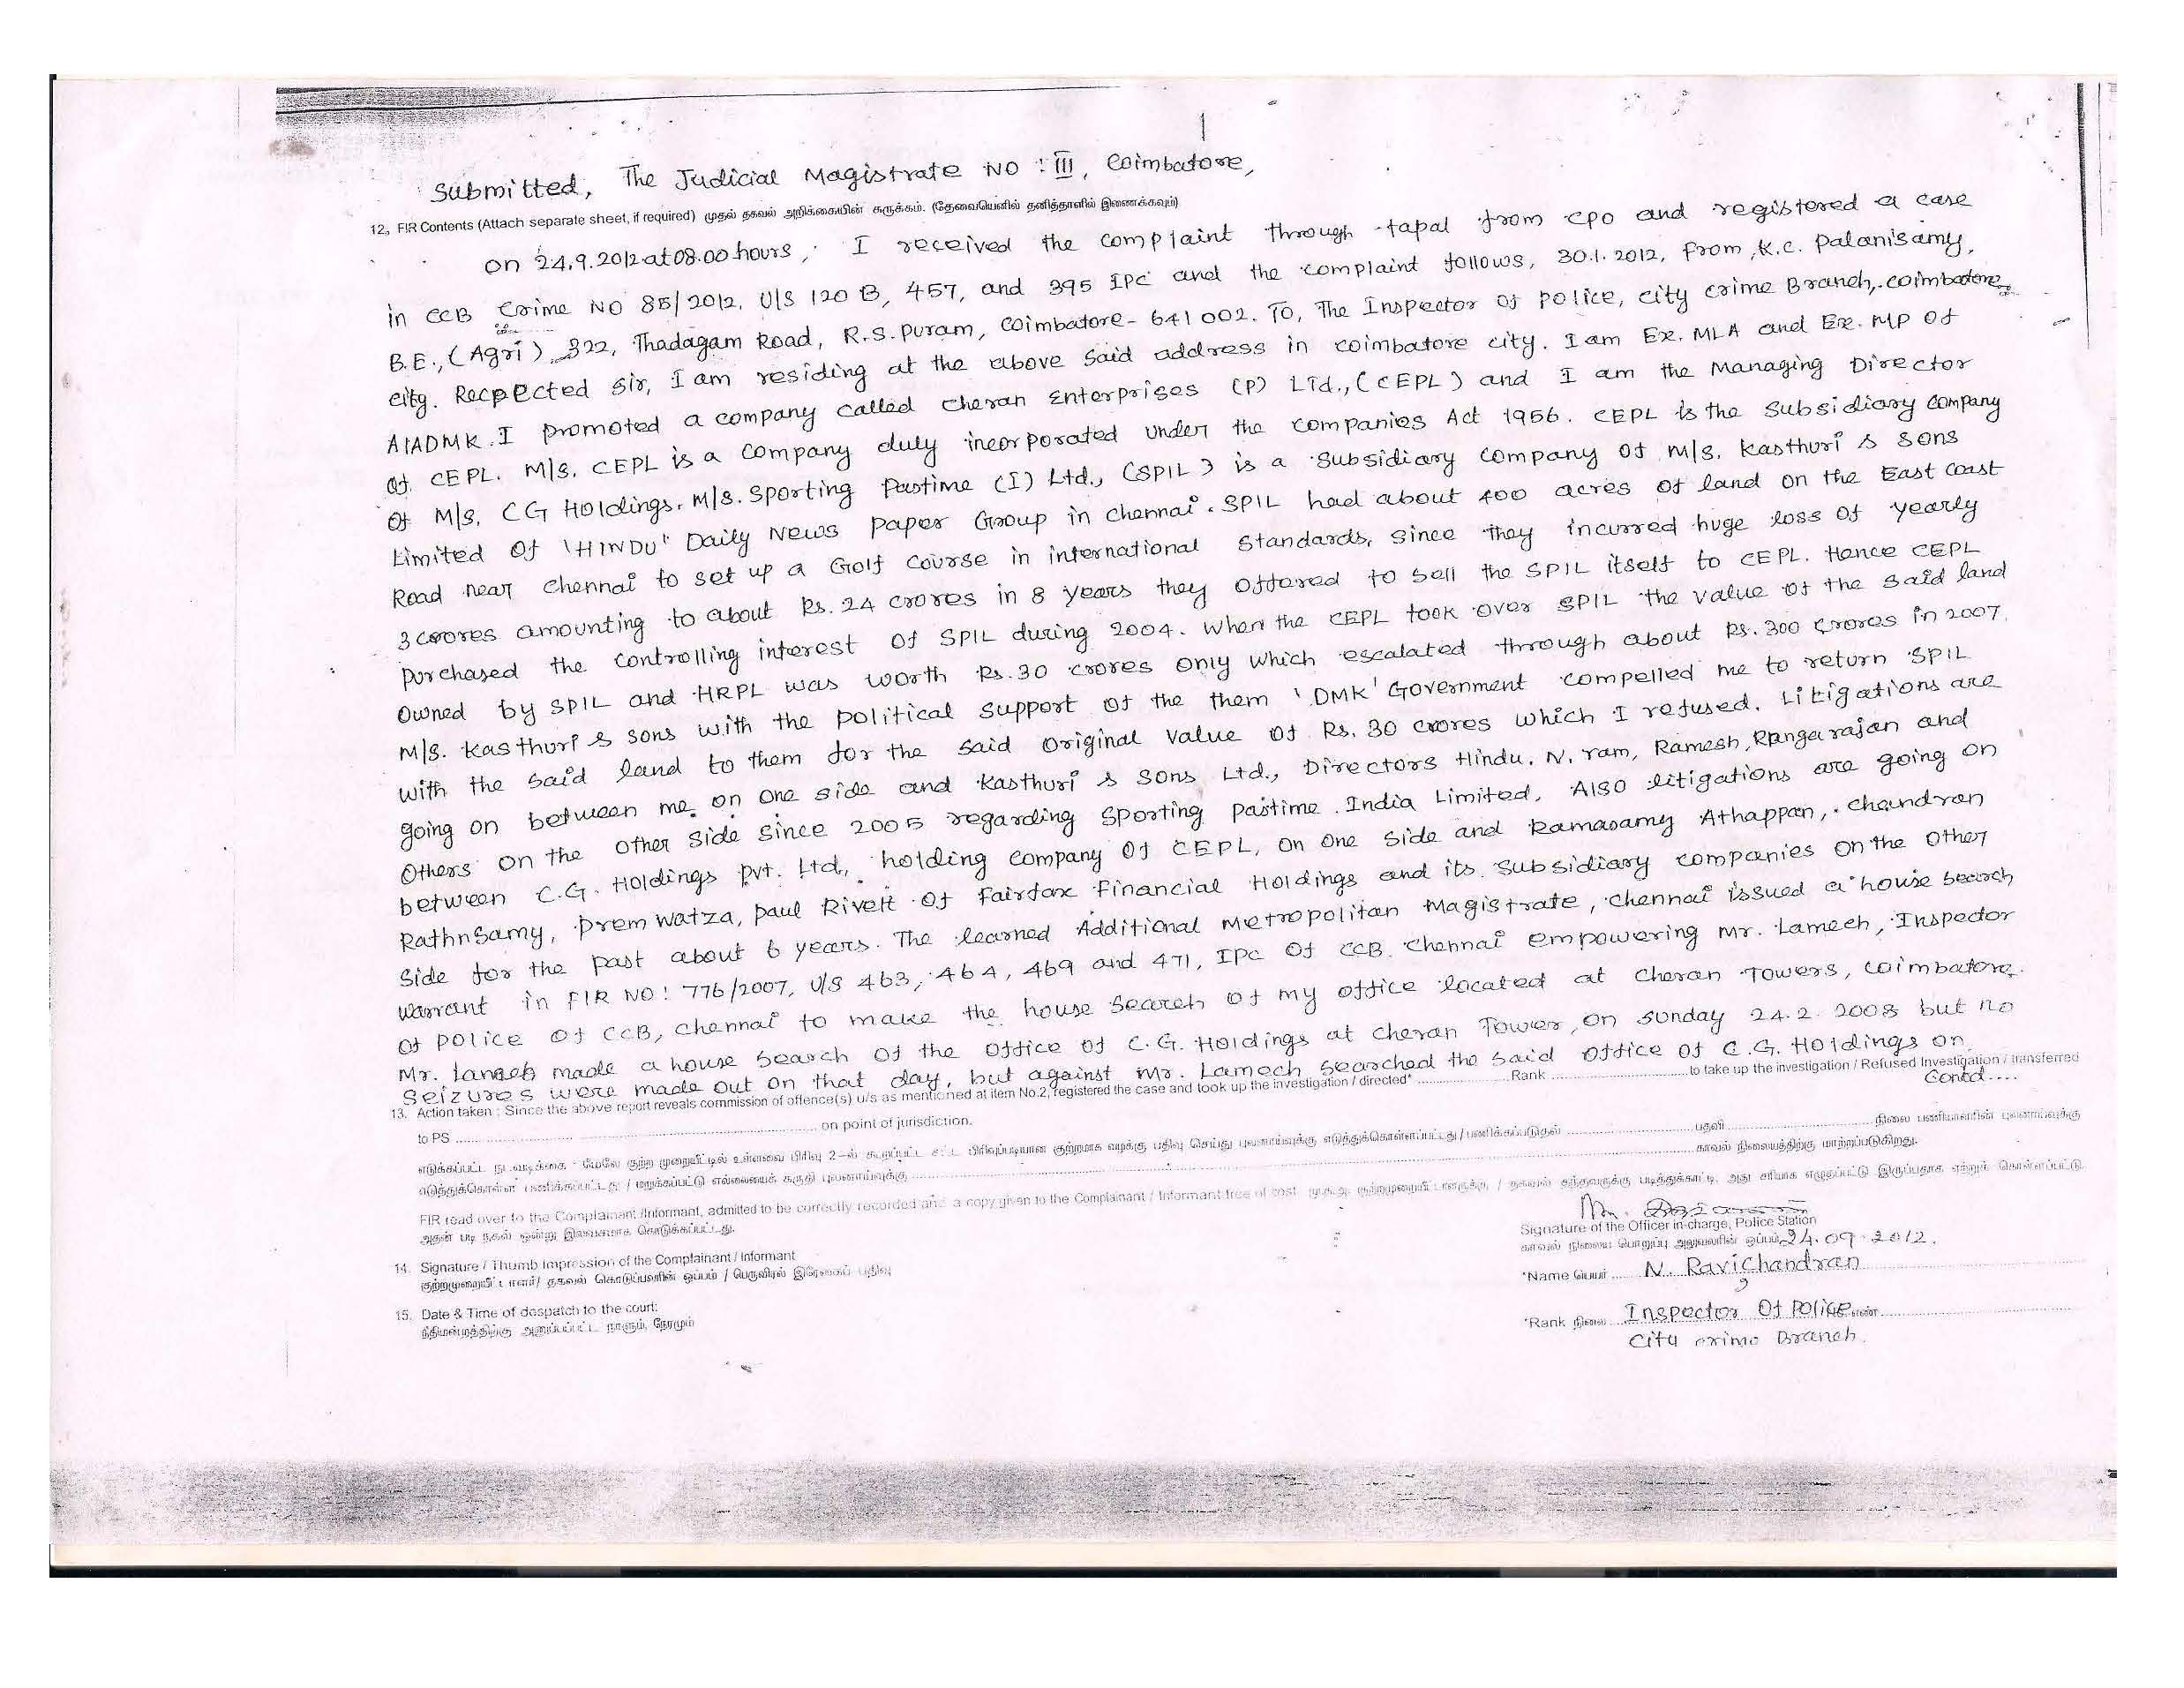 1
Submitted, The Judicial Magistrate NO : III, Coimbatore,
12. FIR Contents (Attach separate sheet, if required) முதல் தகவல் அறிக்கையின் சுருக்கம். (தேவையெனில் தனித்தாளில் இணைக்கவும்)
on 24.9.2012 at 08.00 hours, I received the complaint through tapal from CPO and registered a case
in CCB Crime NO 85/2012, U/S 120 B, 457, and 395 IPC and the complaint follows, 30.1.2012, From, K.C. Palanisamy,
B.E., (Agri) 322, Thadagam Road, R.S. Puram, Coimbatore - 641 002. To, The Inspector of police, city crime Branch, coimbatore
city. Recpected Sir, I am residing at the above said address in coimbatore city. I am Ex. MLA and Ex. MP of
AIADMK. I promoted a company called Cheran Enterprises (P) Ltd., (CEPL) and I am the Managing Director
of CEPL. M/s. CEPL is a Company duly incorporated under the companies Act 1956. CEPL is the Subsidiary Company
of M/s. CG Holdings. M/s. Sporting Pastime (I) Ltd., (SPIL) is a Subsidiary company of M/s. Kasthuri & Sons
Limited of 'HINDU" Daily News Paper Group in chennai. SPIL had about 400 acres of land on the East Coast
Road near chennai to set up a Golf Course in international Standards, Since they incurred huge loss of yearly
3 crores amounting to about Rs. 24 crores in 8 years they offered to sell the SPIL itself to CEPL. Hence CEPL
purchased the controlling interest of SPIL during 2004. When the CEPL took over SPIL the value of the said land
owned by SPIL and HRPL was worth Rs. 30 crores only which escalated through about Rs. 300 crores in 2007.
M/s. Kasthuri & sons with the political support of the them 'DMK' Government compelled me to return SPIL
with the said land to them for the said original value of Rs. 30 crores which I refused. Litigations are
going on between me on one side and Kasthuri & Sons Ltd., Directors Hindu. N. ram, Ramesh, Rangarajan and
Others on the other side since 2005 regarding Sporting pastime India Limited, Also litigations are going on
between C.G. Holdings pvt. Ltd., holding company of CEPL, on one side and Ramasamy Athappan, Chandran
RathnSamy, Prem Watza, Paul Rivett of Fairfax Financial Holdings and its Subsidiary companies on the other
Side for the past about 6 years. The learned Additional Metropolitan Magistrate, chennai issued a house search
warrant in FIR NO: 776/2007, U/S 463, 464, 469 and 471, IPC of CCB Chennai empowering Mr. Lamech, Inspector
of police of CCB, chennai to make the house search of my office located at Cheran Towers, Coimbatore.
Mr. Lamech made a house search of the office of C.G. Holdings at Cheran Tower, on Sunday 24.2.2008 but no
Seizures were made out on that day, but against Mr. Lamech searched the said office of C.G. Holdings on
Contd....
13. Action taken : Since the above report reveals commission of offence(s) u/s as mentioned at item No.2, registered the case and took up the investigation / directed* ............ Rank ............ to take up the investigation / Refused Investigation / transferred
to PS ............ on point of jurisdiction.
எடுக்கப்பட்ட நடவடிக்கை : மேலே குற்ற முறையீட்டில் உள்ளவை பிரிவு 2-ல் கூறப்பட்ட சட்ட பிரிவுப்படியான குற்றமாக வழக்கு பதிவு செய்து புலனாய்வுக்கு எடுத்துக்கொள்ளப்பட்டது / பணிக்கப்படுதல் ............ பதவி ............ நிலை பணியாளரின் புலனாய்வுக்கு
எடுத்துக்கொள்ள பணிக்கப்பட்டது / மறுக்கப்பட்டு எல்லையைக் கருதி புலனாய்வுக்கு ............ காவல் நிலையத்திற்கு மாற்றப்படுகிறது.
FIR read over to the Complainant /Informant, admitted to be correctly recorded and a copy given to the Complainant / Informant free of cost
அதன் படி நகல் ஒன்று இலவசமாக கொடுக்கப்பட்டது.
14. Signature / Thumb Impression of the Complainant / Informant
15. Date & Time of despatch to the court:
நீதிமன்றத்திற்கு அனுப்பப்பட்ட நாளும், நேரமும்
Signature of the Officer in-charge, Police Station
காவல் நிலைய பொறுப்பு அலுவலரின் ஒப்பம் 24.09.2012.
*Name பெயர் ...... N. Ravichandran
*Rank நிலை ...... Inspector Of Police எண் ......
City crime Branch.